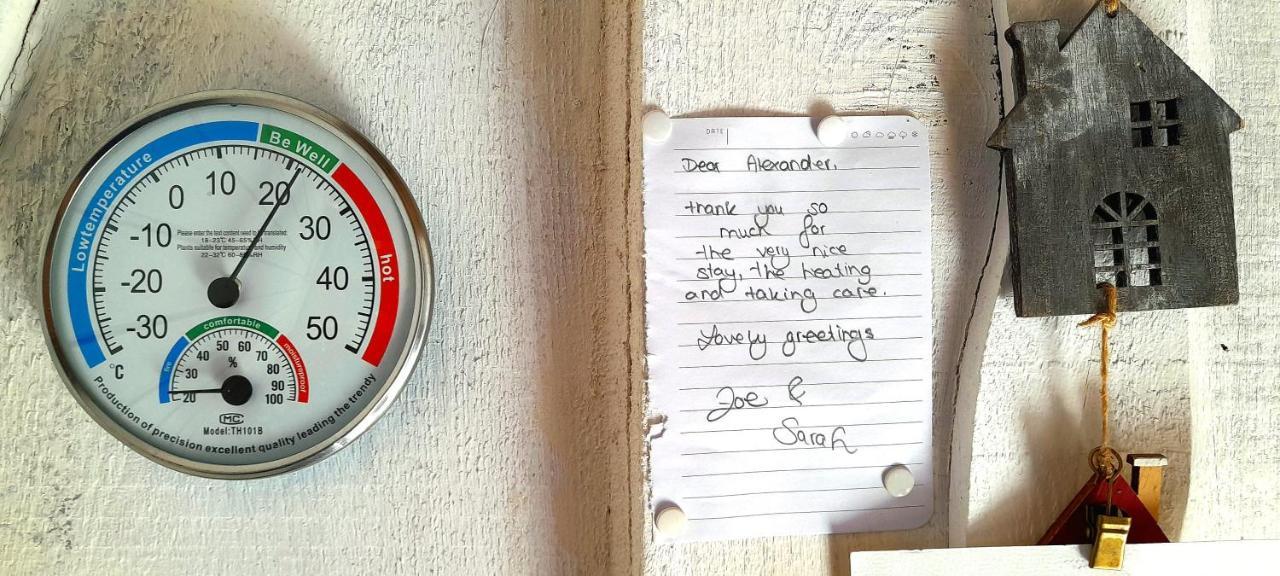 Lowtemperature
Be Well
hot
-30
-20
-10
0
10
20
30
40
50
°C
Please enter the text content need to translated:
18-23℃ 45-65%
Plants suitable for temperature and humidity
22-32℃ 60-
%RH
comfortable
moistureproof
20
30
40
50
60
70
80
90
100
%
MC
Model:TH101B
Production of precision excellent quality leading the trendy
DATE
Dear Alexander,
thank you so
much for
the very nice
stay, the heating
and taking care.
Lovely greetings
Joe &
Sarah